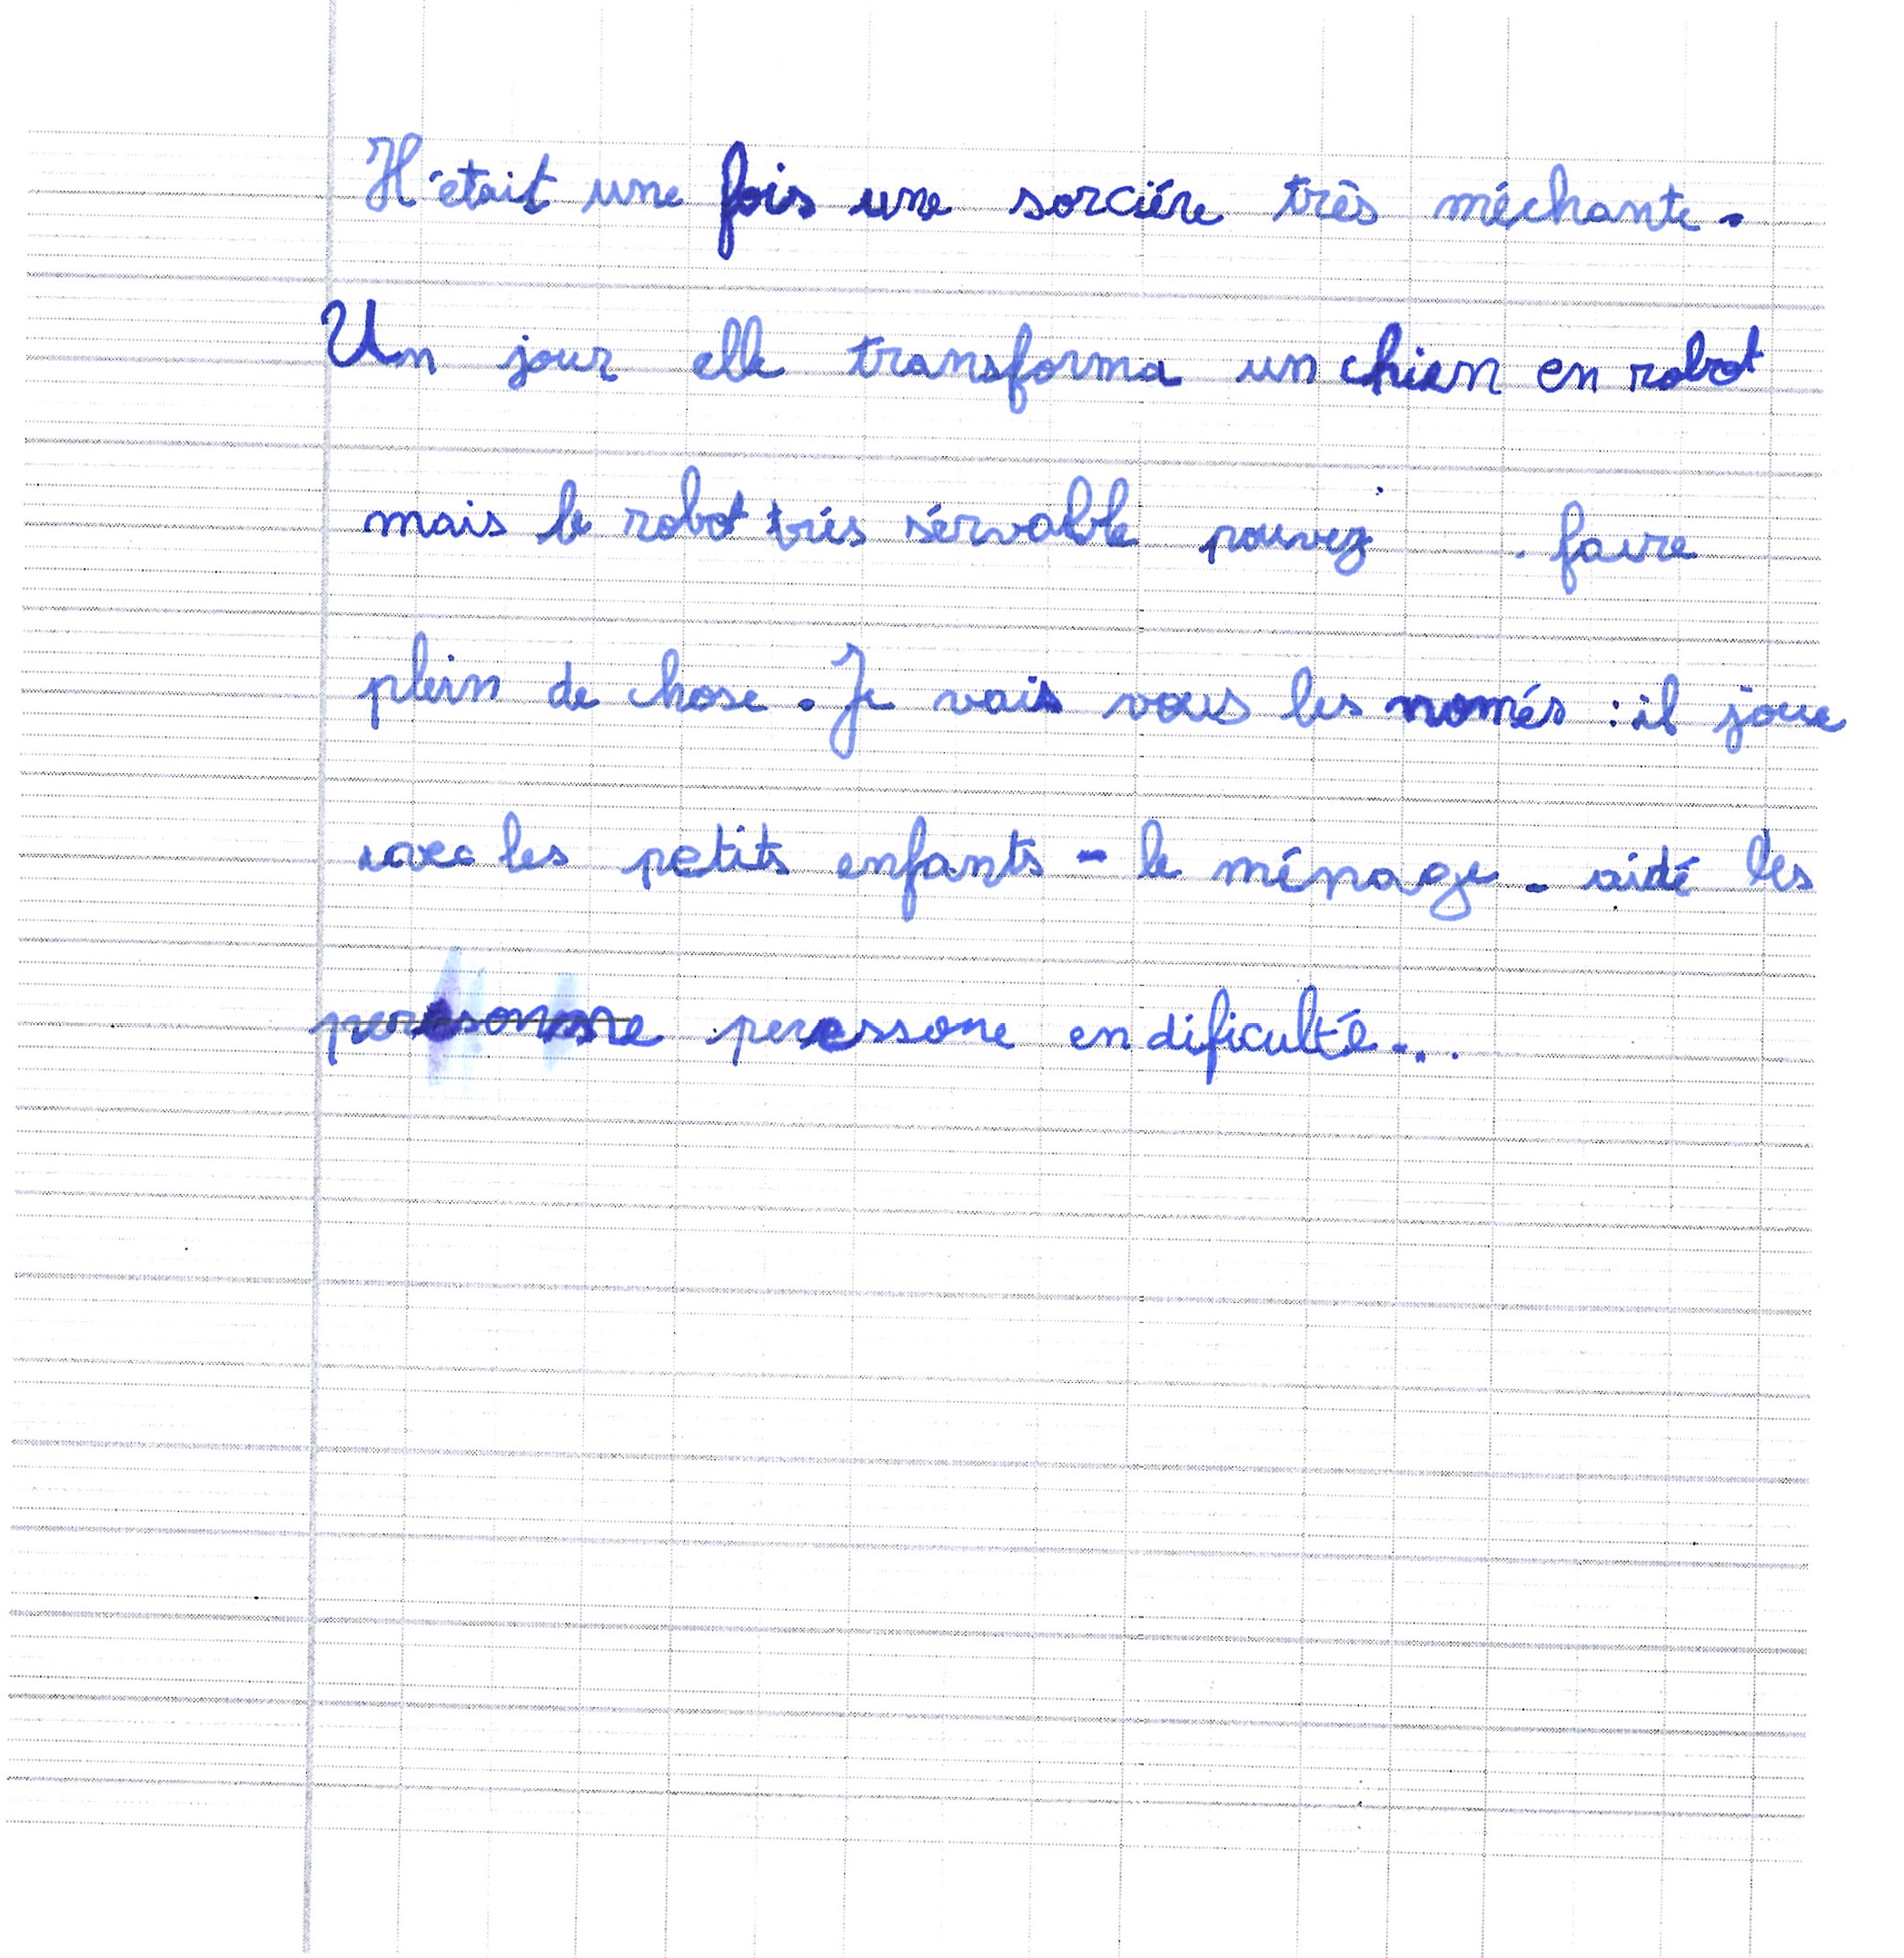 Il était une fois une sorciére très méchante.
Un jour elle transforma un chien en robot
mais le robot trés sérvable pouvez faire
plein de chose. Je vais vous les només : il joue
avec les petits enfants - le ménage - aidé les
peressone en dificulté...